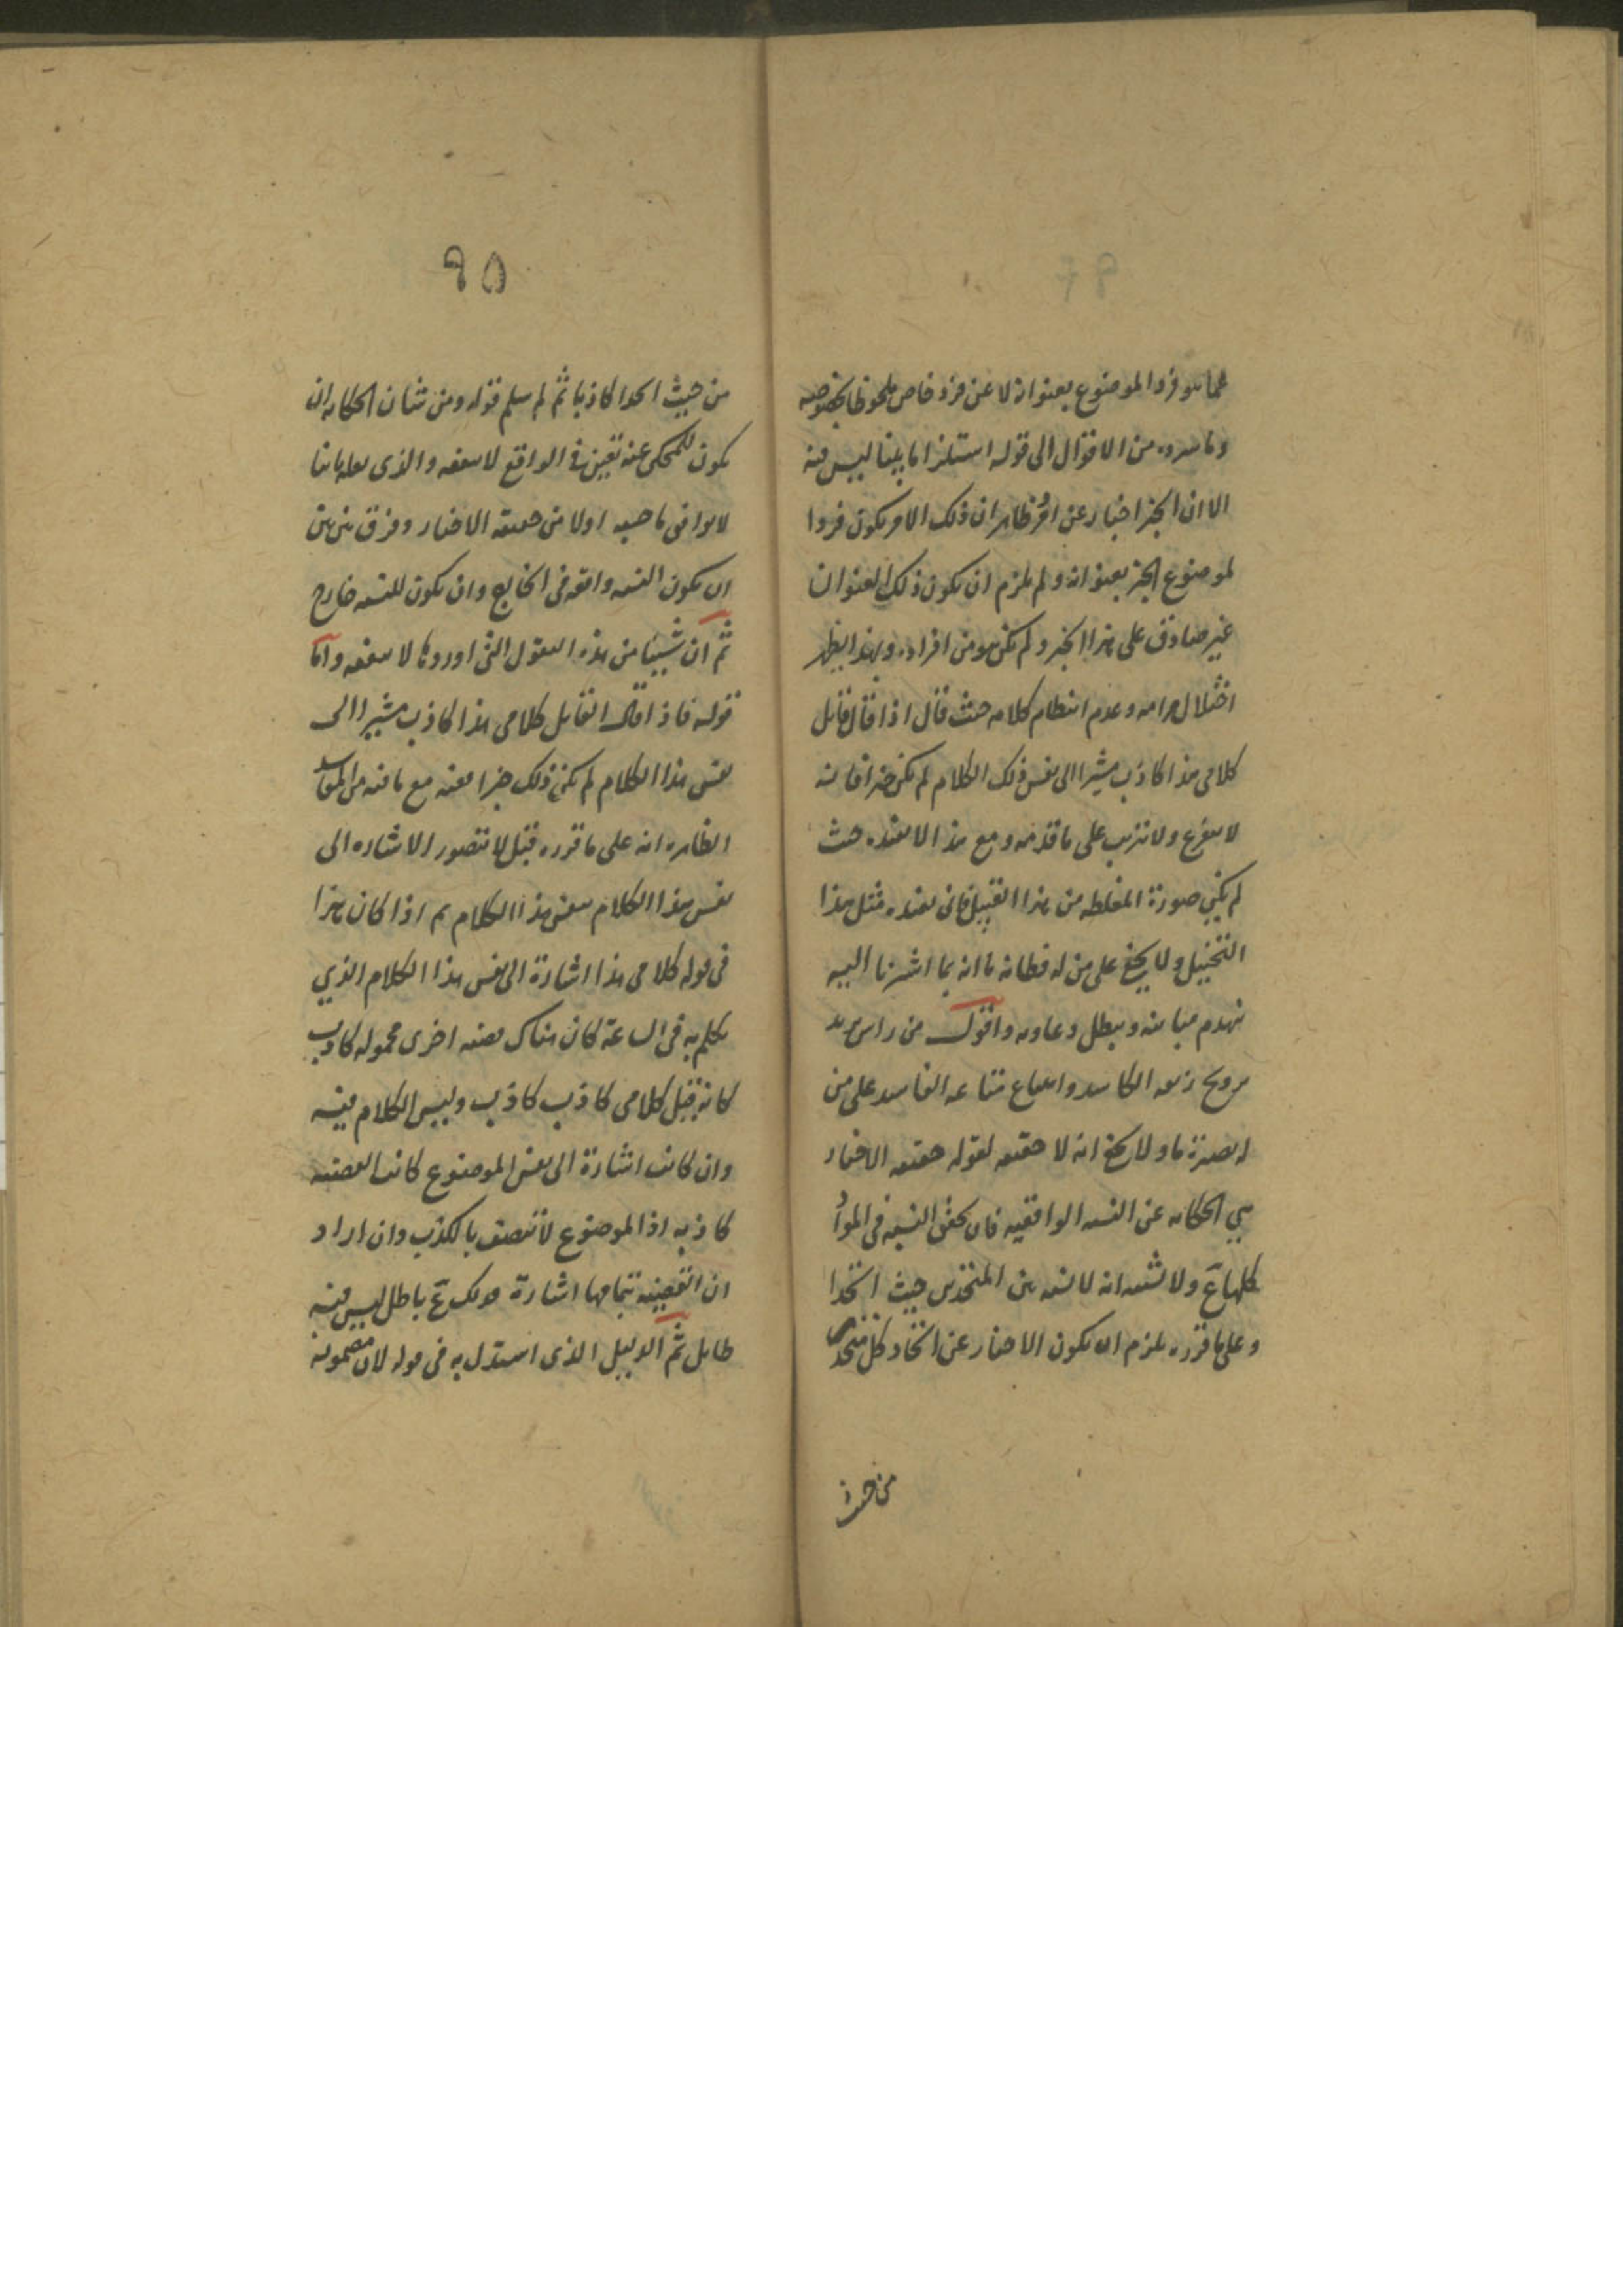 عما هو فرد الموضوع بعنوانه لا عن فرد خاص ملحوظا بخصوصه
وما سرده من الاقوال الى قوله استلزاما بينا ليس فيه
الا ان الخبر اخبار عن امر ظاهر ان ذلك الامر يكون فردا
لموضوع الخبر بعنوانه ولم يلزم ان يكون ذلك العنوان
غير صادق على هذا الخبر ولم يكن هو من افراده وبهذا يظهر
اختلال مرامه وعدم انتظام كلامه حيث قال اذا قال قائل
كلامى هذا كاذب مشيرا الى نفس ذلك الكلام لم يكن خبرا فانه
لا يتفرع ولا يترتب على ما قدمه ومع هذا لا يفيده حيث
لم يكن صورة المغلطه من هذا القبيل فانى يفيده مثل هذا
التخييل ولا يخفى على من له فطانة ما انه بما اشرنا اليه
ينهدم مبانيه ويبطل دعاويه واقول من راس يريد
ترويج زيفه الكاسد وابتياع متاعه الفاسد على من
له بصيرة ما ولا يخفى انه لا حقيقه لقوله حقيقه الاخبار
هى الحكايه عن النسبه الواقعيه فان تحقق النسبه فى المواد
كلها ع ولا نشبه انه لا نسبه بين المتحدين حيث اتحدا
وعلى ما قرره يلزم ان يكون الاخبار عن اتحاد كل متحدين
من حيث
٩٥
من حيث اتحدا كاذبا ثم لم سلم قوله ومن شان الحكايه ان
يكون للمحكى عنه تعين فى الواقع لا ينفعه والذى نقله ثانيا
لا يوافى ما حسبه اولا من حقيقة الاخبار وفرق بين بين
ان يكون النسبه واقعه فى الخارج وان يكون للنسبه خارج
ثم ان شيئا من هذه النقول التى اوردها لا ينفعه واما
قوله فاذا قال القايل كلامى هذا كاذب مشيرا الى
نفس هذا الكلام لم يكن ذلك خبرا ففيه مع ما فيه من المفاسد
الظاهره انه على ما قرره قبل لا تتصور الاشاره الى
نفس هذا الكلام بنفس هذا الكلام ثم اذا كان هذا
فى قوله كلامى هذا اشارة الى نفس هذا الكلام الذي
يكلم به فى الساعة كان هناك قضيه اخرى محموله كاذب
كانه قيل كلامى كاذب كاذب وليس الكلام فيه
وان كانت اشارة الى نفس الموضوع كانت القضيه
كاذبه اذ الموضوع لا يتصف بالكذب وان اراد
ان القضيه بتمامها اشارة فذلك مع باطل ليس فيه
طايل ثم الدليل الذى استدل به فى قوله لان مضمونه